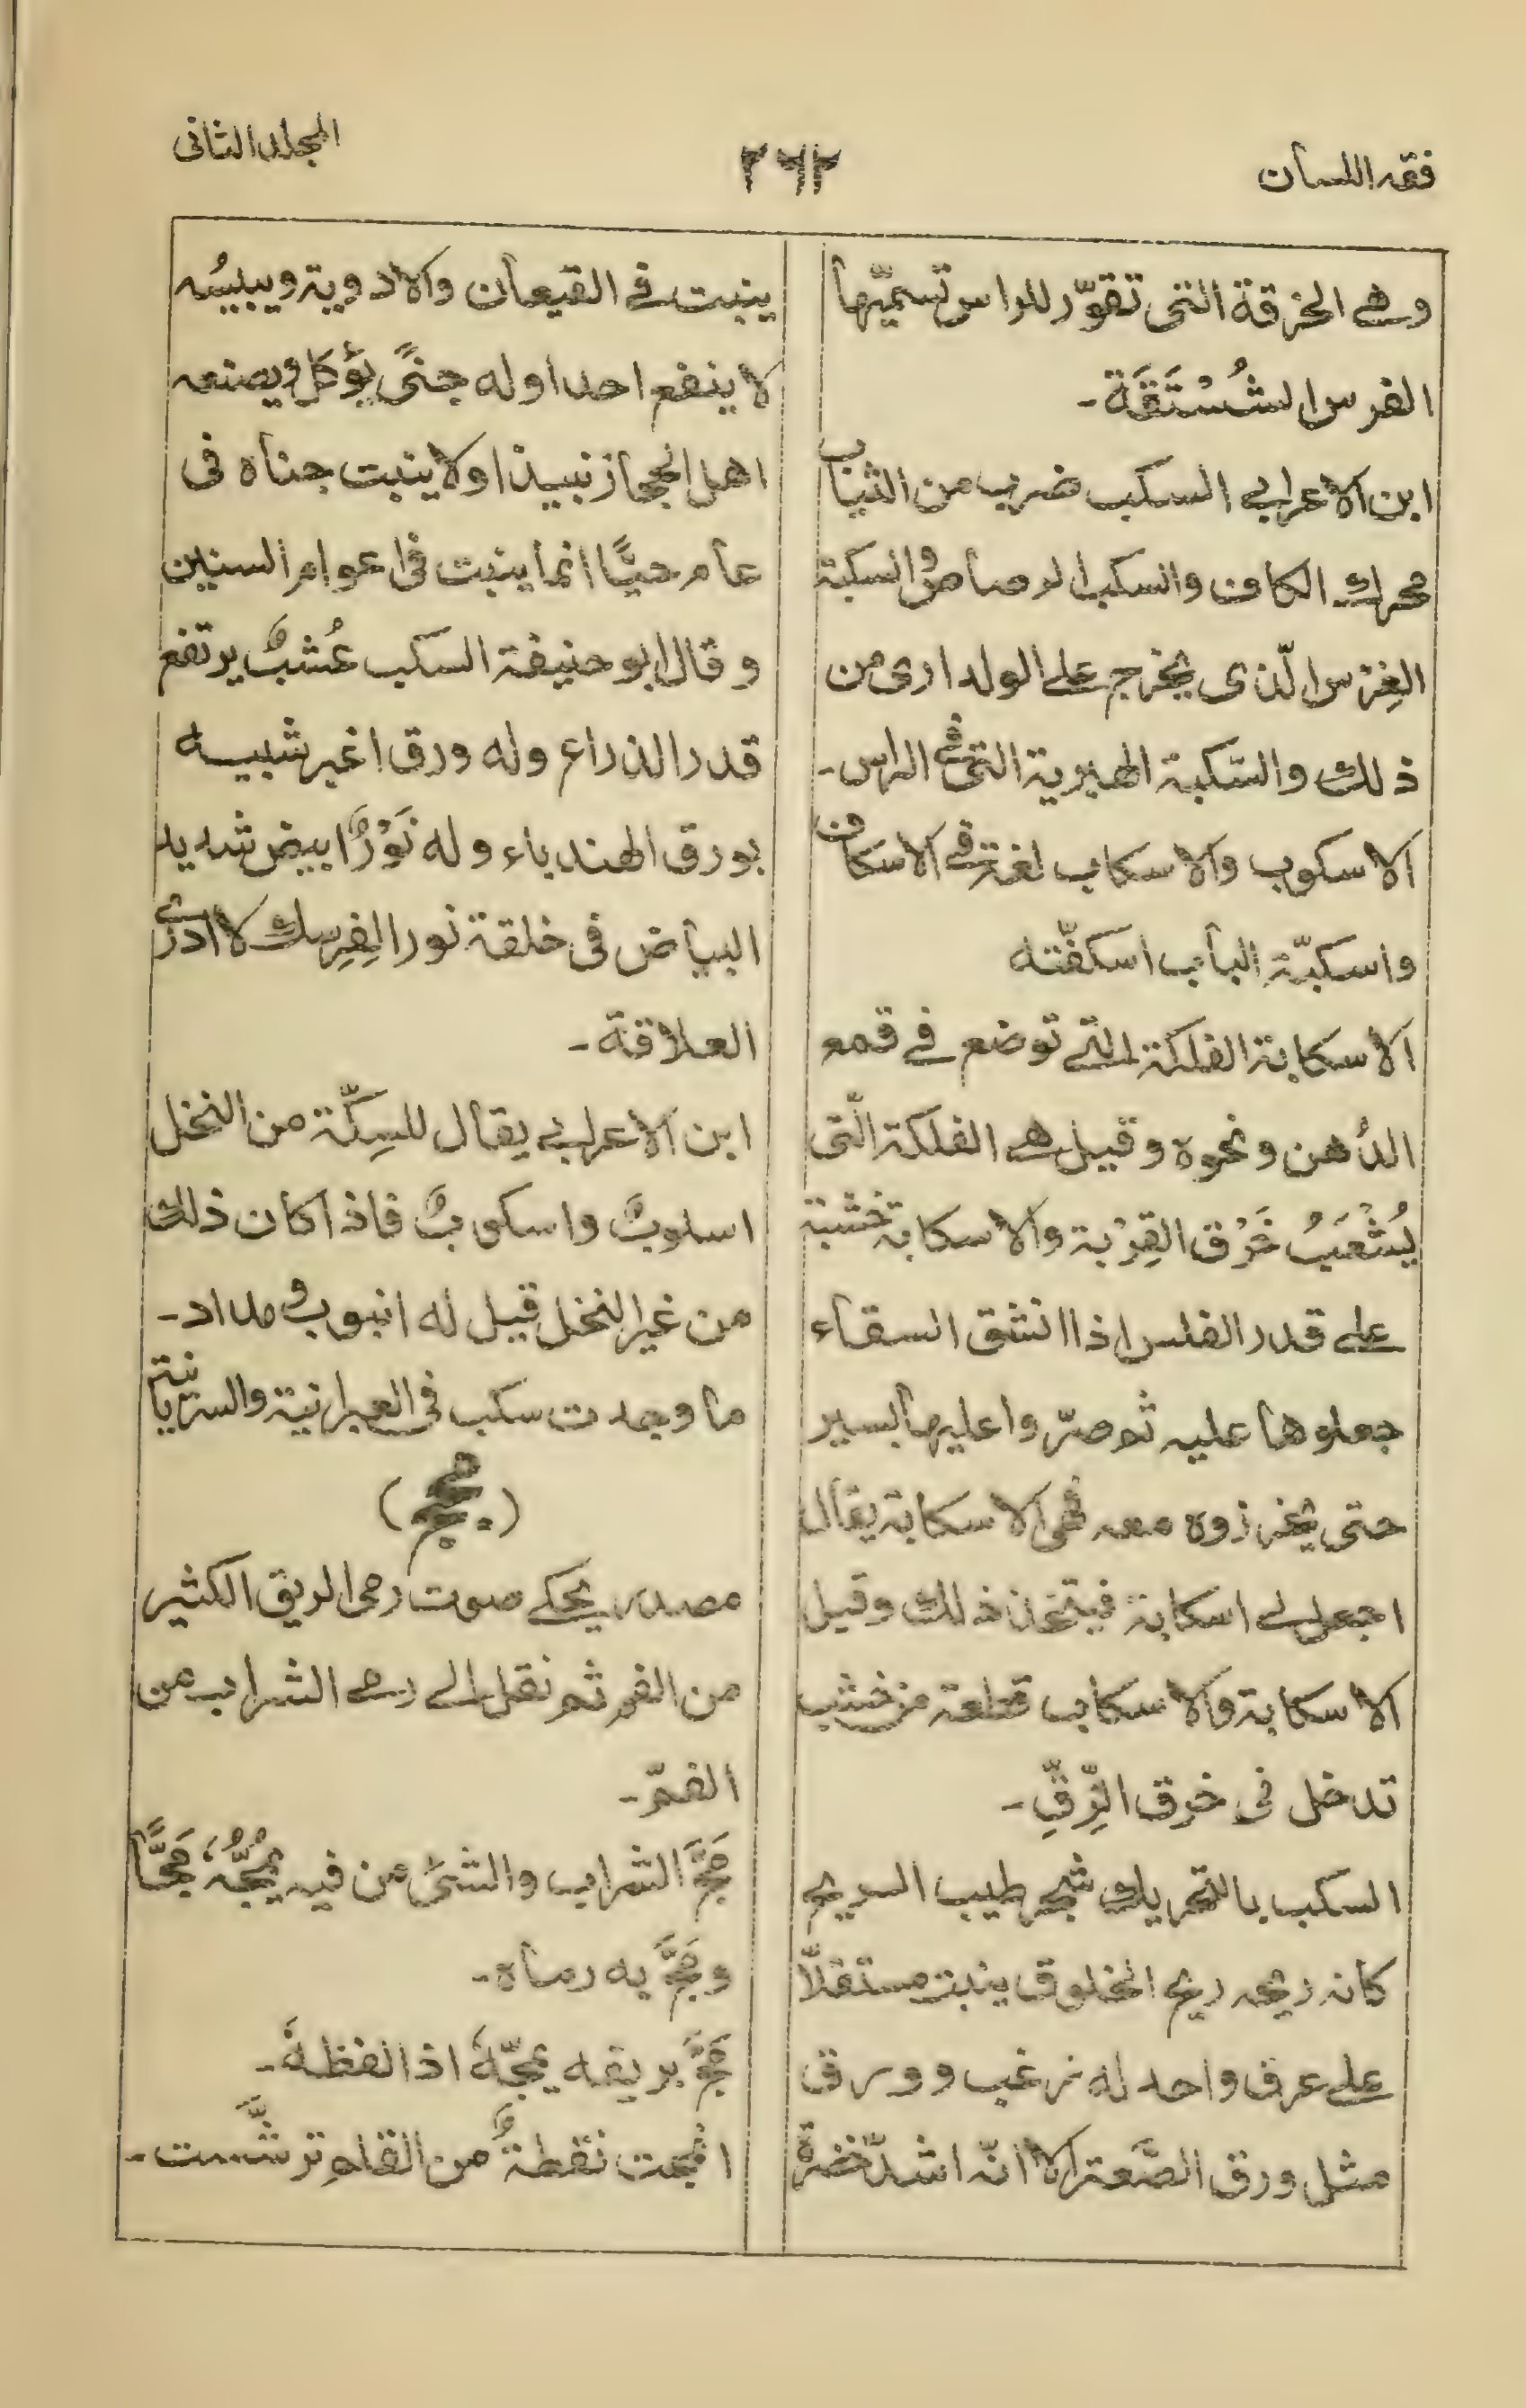 فقه اللسان
٢٦٢
المجلد الثانى
وهے الخرقة التى تقوّر للراس تسمّيها
الفرس الشُسْتَقَة۔
ابن الاعرابے السكب ضرب من الثياب
محرك الكاف والسكب الرصاص والسكبة
الغِرْس الّذى يخرج علے الولد ارى من
ذلك والسّكبة الهبرية التى فے الراس۔
الاسكوب والاسكاب لغة فے الاسكاف
واسكبّة الباب اسكفّته
الاسكابة الفلكة التے توضع فے قمع
الدُهن ونحوه وقيل هے الفلكة الّتى
يُشْعَبُ خَرْق القِرْبة والاسكابة خشبة
علے قدر الفلس اذا انشق السقاء
جعلوها عليه ثم صرّوا عليها بسير
حتى يخرزوه معه فهى الاسكابة يقال
اجعل لے اسكابة فيتخذ ذلك وقيل
الاسكابة والاسكاب قطعة من خشب
تدخل فى خرق الزِّقِّ۔
السكب بالتحريك شجر طيب الريح
كانه ريحه ريح الخلوق ينبت مستقلّاً
علے عرق واحد له زغب وورق
مثل ورق الصَّعتر الا انّه اشدّ خضرةً
ينبت فے القيعان والاودية ويبيسُه
لا ينفع احدا وله جنًى يؤكل ويصنعه
اهل الحجاز نبيذا ولا ينبت جناه فى
عام حيًّا انما ينبت فى اعوام السنين
وقال ابو حنيفة السكب عُشبٌ يرتفع
قدر الذراع وله ورق اغبر شبيه
بورق الهندباء وله نَوْرٌ ابيض شديد
البياض فى خلقة نور الفِرِسك لا ادرے
العلاقة۔
ابن الاعرابے يقال للسِكّة من النخل
اسلوبٌ واسكوبٌ فاذا كان ذلك
من غير النخل قيل له انبوب ومداد۔
ما وجدت سكب فى العبرانية والسريانية
(مجّ)
مصدر يحكے صوت رمى الريق الكثير
من الفم ثم نقل الے رمے الشراب من
الفمّ۔
مَجَّ الشراب والشئ من فيه يَمُجُّهُ مَجًّا
ومَجَّ به رماه۔
مَجَّ بريقه يمجّهٗ اذا لفظهٗ۔
انمجت نقطةٌ من القلمِ ترشَّست۔